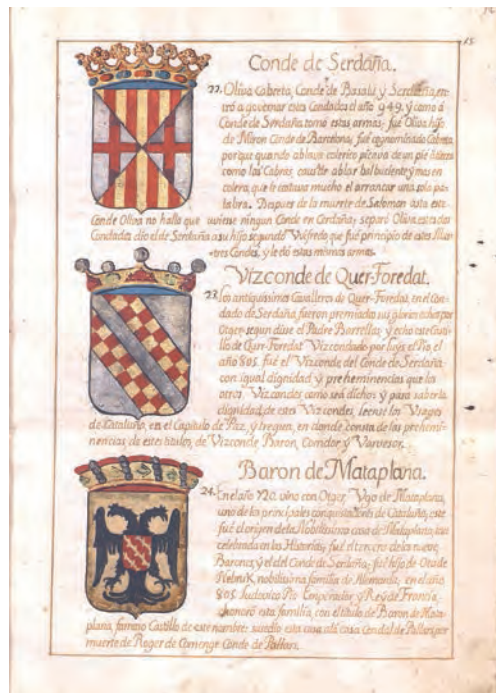 15
Conde de Serdaña.
22. Oliva Cabreta, Conde de Basalú, y Serdaña, en
tró a governar estos Condados el año 949. y como á
Conde de Serdaña tomo estas armas; fué Oliva hijo
de Miron Conde de Barcelona; fué cognominado Cabreta
porque quando ablava colerico picava de un pie
como las Cabras, de ablar balbuciente y mas en
colera, que le costava mucho el arrancar una sola pa-
labra. Despues de la muerte de Salomon asta este
Conde Oliva no hallo que uviese ningun Conde en Cerdaña; separó Oliva estos dos
Condados dio el de Serdaña a su hijo segundo Vuifredo que fué principio de estos Illus-
tres Condes, y le dió estas mismas armas.
Vizconde de Quer-Foredat.
23. Los antiquissimos Cavalleros de Quer-Foredat, en el Con-
dado de Serdaña fueron premiados sus gloriosos echos por
Otger, segun dise el Padre Barrellas, y echo este Casti-
llo de Quer-Foredat Vizcondado por Luys el Pio, el
año 805. fué el Vizconde del Conde de Serdaña
con igual dignidad, y preheminencias que los
otros Vizcondes como será dichos y para saber la
dignidad, de estos Vizcondes, leense los Usages
de Cataluña, en el Capitulo de Paz, y tregua, en donde consta de las prehemi-
nencias, de estos titulos, de Vizconde, Baron, Comdor, y Varvesor.
Baron de Mataplana.
24. En el año 720. vino con Otger, Ugo de Mataplana,
uno de los principales conquistadores de Cataluña, este
fué el origen de la Nobilissima casa de Mataplana, tan
celebrada en las Historias, fué el tercero de los nueve
Barones, y el del Conde de Serdaña; fué hijo de
nobilissima familia de Alemania, en el año
805. Ludovico Pio Emperador, y Rey de Francia,
honoró esta familia, con el titulo de Baron de Mata-
plana, famoso Castillo de este nombre: susedio esta casa a la casa Condal de Pallars, por
muerte de Roger de Comenge Conde de Pallars.